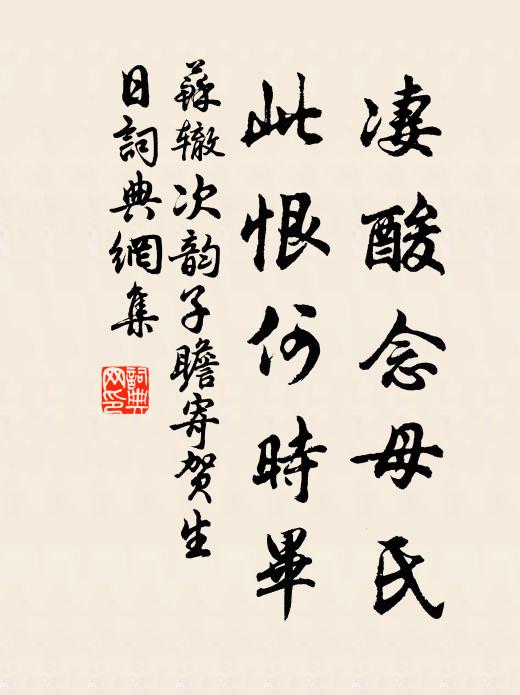 凄酸念母氏
此恨何時畢
蘇辙次韵子瞻寄贺生
日詞典網集
詞典
网印